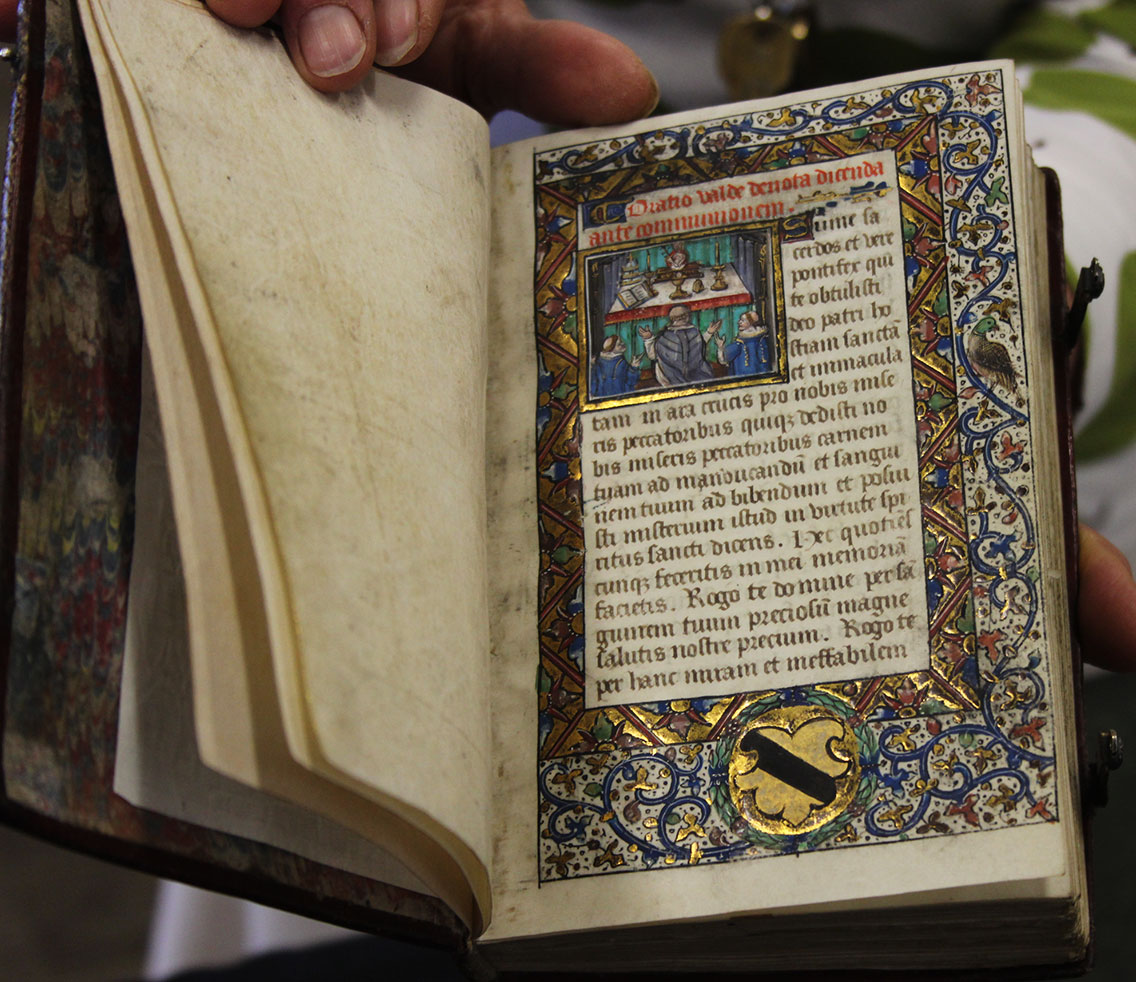 Oratio valde devota dicenda
ante communionem.
Sume sa
cerdos et vere
pontifex qui
te obtulisti
deo patri ho
stiam sanctã
et immacula
tam in ara crucis pro nobis mise
ris peccatoribus quiqz dedisti no
bis miseris peccatoribus carnem
tuam ad manducandũ et sangui
nem tuum ad bibendum et posui
sti misterium istud in virtute spi
ritus sancti dicens. Hec quotiẽs
cunqz feceritis in mei memoriã
facietis. Rogo te domine per sã
guinem tuum preciosũ magne
salutis nostre precium. Rogo te
per hanc miram et ineffabilem